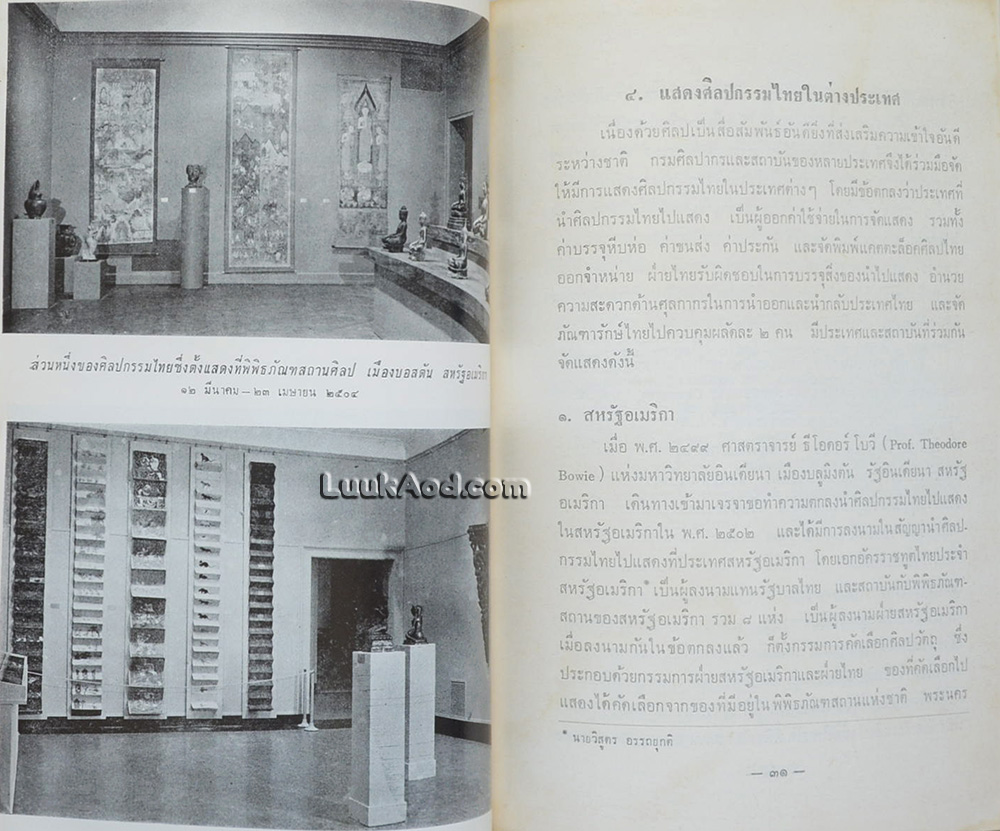 ส่วนหนึ่งของศิลปกรรมไทยซึ่งตั้งแสดงที่พิพิธภัณฑสถานศิลป เมืองบอสตัน สหรัฐอเมริกา
๑๒ มีนาคม — ๒๓ เมษายน ๒๕๐๔
LuukAod.com
๔. แสดงศิลปกรรมไทยในต่างประเทศ
เนื่องด้วยศิลปเป็นสื่อสัมพันธ์อันดียิ่งที่ส่งเสริมความเข้าใจอันดี
ระหว่างชาติ กรมศิลปากรและสถาบันของหลายประเทศจึงได้ร่วมมือจัด
ให้มีการแสดงศิลปกรรมไทยในประเทศต่างๆ โดยมีข้อตกลงว่าประเทศที่
นำศิลปกรรมไทยไปแสดง เป็นผู้ออกค่าใช้จ่ายในการจัดแสดง รวมทั้ง
ค่าบรรจุหีบห่อ ค่าขนส่ง ค่าประกัน และจัดพิมพ์แคตตะล็อคศิลปไทย
ออกจำหน่าย ฝ่ายไทยรับผิดชอบในการบรรจุสิ่งของนำไปแสดง อำนวย
ความสะดวกด้านศุลกากรในการนำออกและนำกลับประเทศไทย และจัด
ภัณฑารักษ์ไทยไปควบคุมผลัดละ ๒ คน มีประเทศและสถาบันที่ร่วมกัน
จัดแสดงดังนี้
๑. สหรัฐอเมริกา
เมื่อ พ.ศ. ๒๔๙๙ ศาสตราจารย์ ธีโอดอร์ โบวี (Prof. Theodore
Bowie) แห่งมหาวิทยาลัยอินเดียนา เมืองบลูมิงตัน รัฐอินเดียนา สหรัฐ
อเมริกา เดินทางเข้ามาเจรจาขอทำความตกลงนำศิลปกรรมไทยไปแสดง
ในสหรัฐอเมริกาใน พ.ศ. ๒๕๐๒ และได้มีการลงนามในสัญญานำศิลป-
กรรมไทยไปแสดงที่ประเทศสหรัฐอเมริกา โดยเอกอัครราชทูตไทยประจำ
สหรัฐอเมริกา* เป็นผู้ลงนามแทนรัฐบาลไทย และสถาบันกับพิพิธภัณฑ-
สถานของสหรัฐอเมริกา รวม ๘ แห่ง เป็นผู้ลงนามฝ่ายสหรัฐอเมริกา
เมื่อลงนามกันในข้อตกลงแล้ว ก็ตั้งกรรมการคัดเลือกศิลปวัตถุ ซึ่ง
ประกอบด้วยกรรมการฝ่ายสหรัฐอเมริกาและฝ่ายไทย ของที่คัดเลือกไป
แสดงได้คัดเลือกจากของที่มีอยู่ในพิพิธภัณฑสถานแห่งชาติ พระนคร
* นายวิสูตร อรรถยุกติ
— ๓๑ —